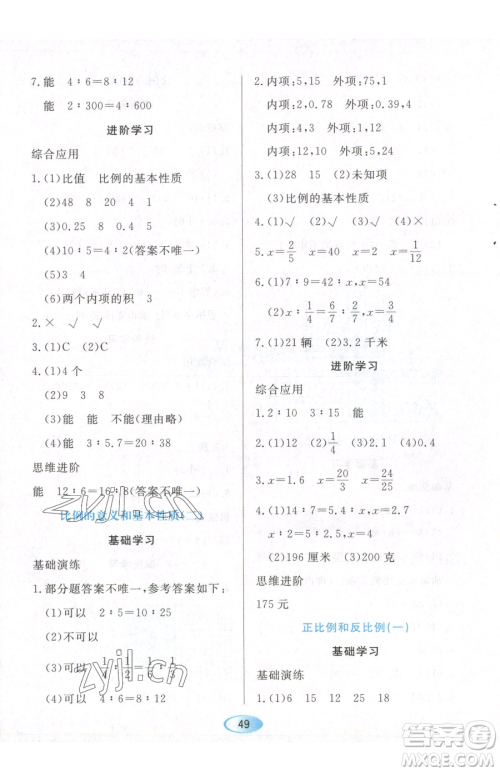 7.能 4∶6=8∶12
能 2∶300=4∶600
进阶学习
综合应用
1.(1)比值 比例的基本性质
(2)48 8 20 4 1
(3)0.25 8 0.4
(4)10∶5=4∶2(答案不唯一)
(5)3 4
(6)两个内项的积 3
2.× √ √
3.(1)C (2)C
4.(1)4个
(2)9 3 8
(3)能 能 不能(理由略)
(4)3∶5.7=20∶38
思维进阶
能 12∶6=16∶8(答案不唯一)
比例的意义和基本性质(二)
基础学习
基础演练
1.部分题答案不唯一，参考答案如下:
(1)可以 2∶5=10∶25
(2)不可以
(3)可以 1/2∶1/3=1/6∶1/9
(4)可以 4∶8=5∶10
2.内项:5,15 外项:75,1
内项:2,0.78 外项:0.39,4
内项:4,3 外项:1,12
内项:12,10 外项:5,24
3.(1)15 18 (2)未知项
(3)比例的基本性质
4.(1)√ (2)√ (3)√ (4)×
5.x=2/5 x=40 x=2 x=1/12
6.(1)7∶9=42∶x x=54
(2)x∶1/4=6/7∶2/7 x=3/4
7.(1)21 辆 (2)3.2 千米
进阶学习
综合应用
1.2∶10 3∶15 能
2.(1)12 (2)0.4 (3)2.1 (4)1
3.x=1.6 x=20/3 x=24/25
4.(1)14∶7=x∶2.7 x=5.4
x∶2=5∶2 x=5
(2)196 厘米 (3)200 克
思维进阶
175 元
正比例和反比例(一)
基础学习
基础演练
1.(1)6 15 12 25 18
49
zyjl.cn
zyjl.cn
答案圈
MXQE.COM